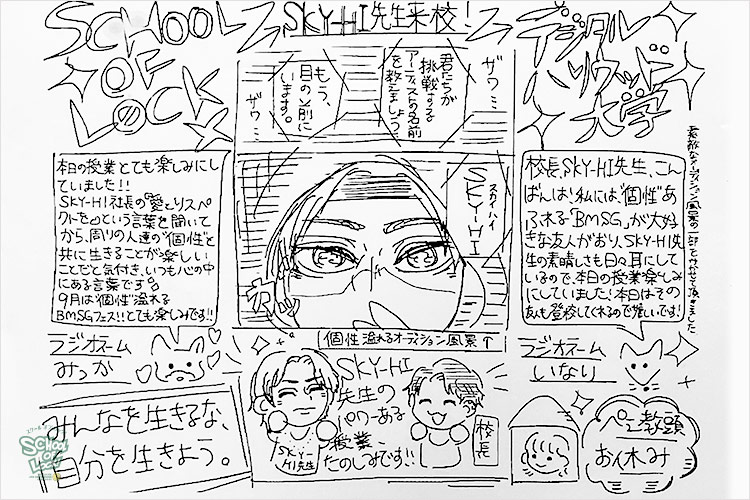 SCHOOL
OF
LOCK
SKY-HI先生来校!
デジタル
ハリウッド
大学
ザワ…
君たちが
挑戦する
アーティストの名前
を教えましょう…
もう、
目の前に
います。
ザワ…
スカイハイ
SKY-HI
カッ
素敵なオーディション風景の一部をかかせて頂きました
本日の授業とても楽しみにし
ていました!!
SKY-HI社長の「愛とリスペ
クトを」という言葉を聞いて
から、周りの人達の"個性"と
共に生きることが楽しい
ことだと気付き、いつも心の中
にある言葉です。
9月は"個性"溢れる
BMSGフェス!!とても楽しみです!!
ラジオネーム
みっか
校長、SKY-HI先生、こん
ばんは!私には"個性"あ
ふれる「BMSG」が大好
きな友人がおり、SKY-HI先
生の素晴しさも日々耳にして
いるので、本日の授業楽しみ
にしていました!本日はその
友も登校してくれるので嬉しいです!
ラジオネーム
いなり
個性溢れるオーディション風景↑
SKY-HI
先生の
パワーある
授業、
たのしみです!!
SKY-
HI先生
校長
みんなを生きるな、
自分を生きよう。
ぺえ教頭
お休み
SCHOOL
OF
LOCK!